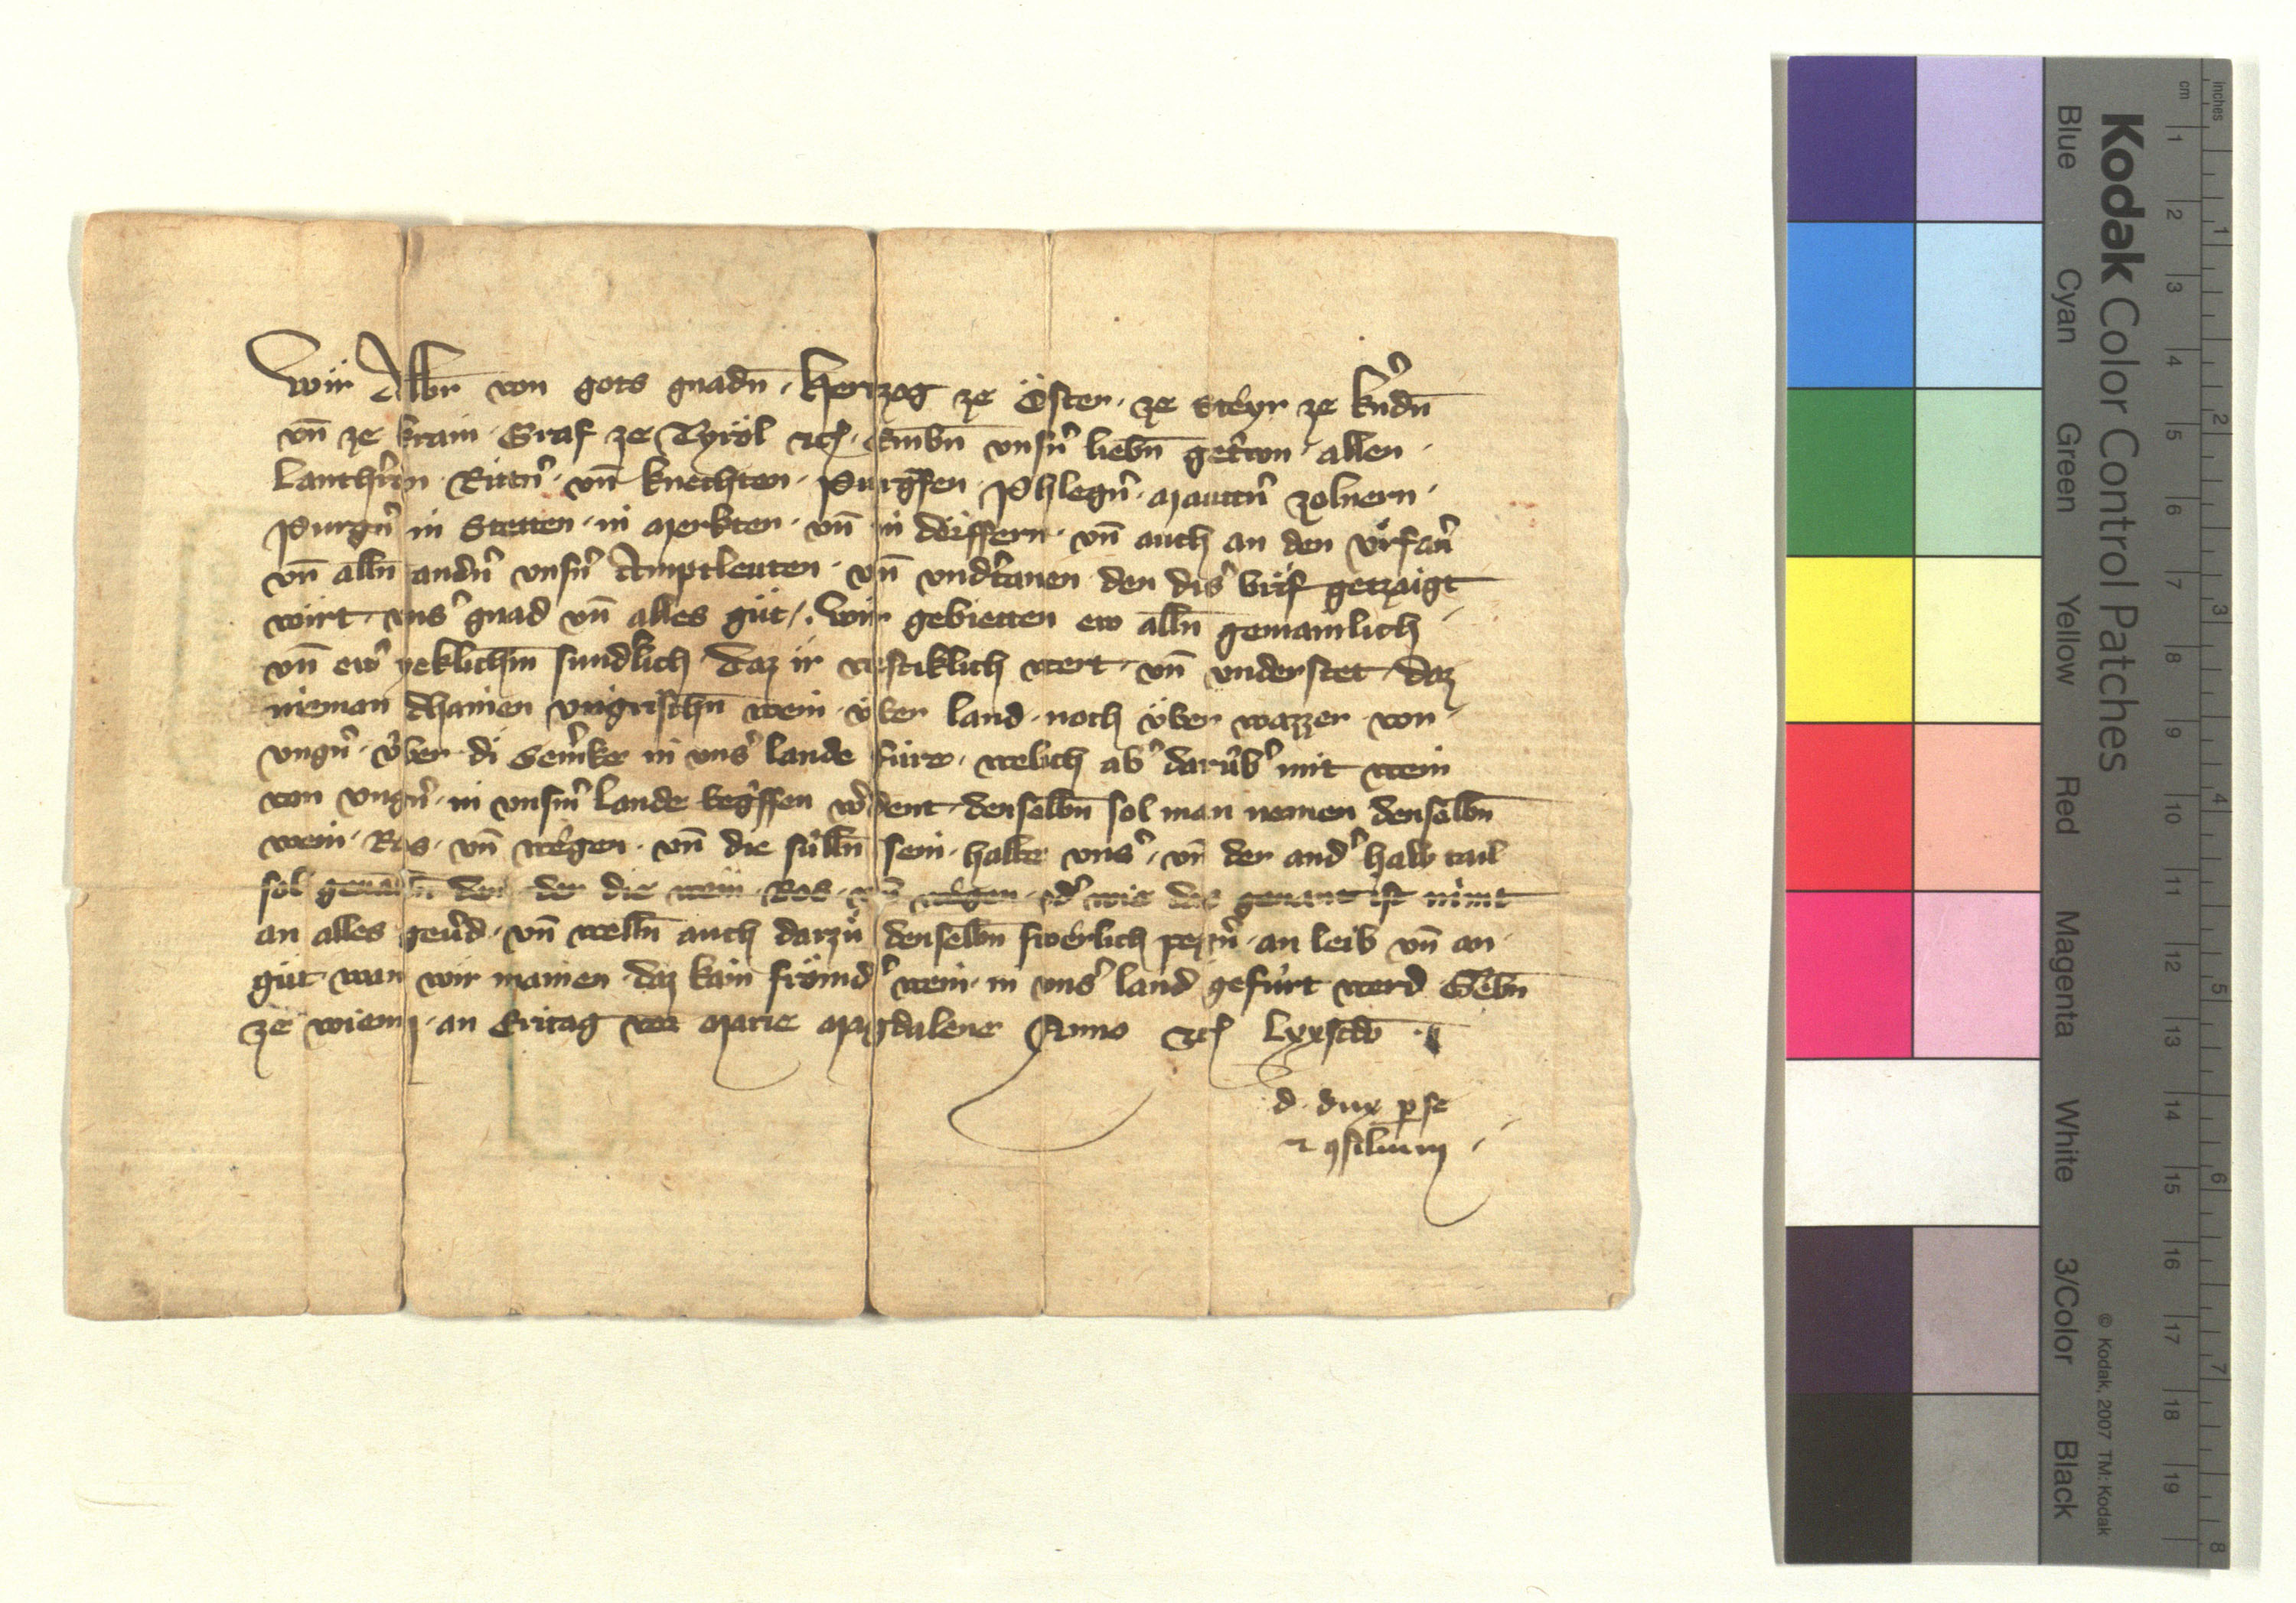 Wir Albr von gots gnadn · Hertzog ze Österr · ze Steyr ze kerndn
vn̄ ze krain · Graf ze Tyrol ꝛcꝭ · Embn̄ vnsn̉ liebn̄ getrewn · allen ·
Lanth̉ren · Rittn̉ · vn̄ knechten · Purgrafen · Phlegn̉ · Mauttn̉ zolnern ·
Purgn̉ in Stetten · in Merkten · vn̄ in dörffern · vn̄ auch an den vrfarn̉
vn̄ alln̄ andn̉ vnsn̉ Amptleuten · vn̄ vndtanen den dis̉ brief getzaigt
wirt · vns̉ gnad vn̄ alles gůt / · Wir gebietten ew alln̄ gemainlich
vn̄ ewr̉ yeklichm̄ sundlich · Daz ir vestiklich wert · vn̄ understet · daz
nieman dhainen vngrischn̄ wein · vber land · noch vber wazzer · von ·
vngn̉ · vber di Gem̉ke in vns̉ lande fure · welich ab̉ darůb̉ mit wein
von vngn̉ · in vnsm̉ lande begriffen w̉dent · denselbn̄ sol man nemen denselbn̄
wein · Ros · vn̄ wegen · vn̄ die sulln̄ sein · halbe vns̉ · vn̄ der and̉ halb tail
sol den der die wein · Ros · vn̄ wegen · od̉ wie das genant ist nimt
an alles geu̓d · vn̄ welln̄ auch darzů denselbn̄ swerlich pezzn̉ · an leib vn̄ an ·
gůt · wan wir mainen · daz kain frömd̉ wein · in vns̉ land gefurt werd Gebn̄
ze wienn · an Eritag vor Marie Magdalene Anno ꝛcꝭ Lxx
d · dux p se
⁊ ꝯsilium